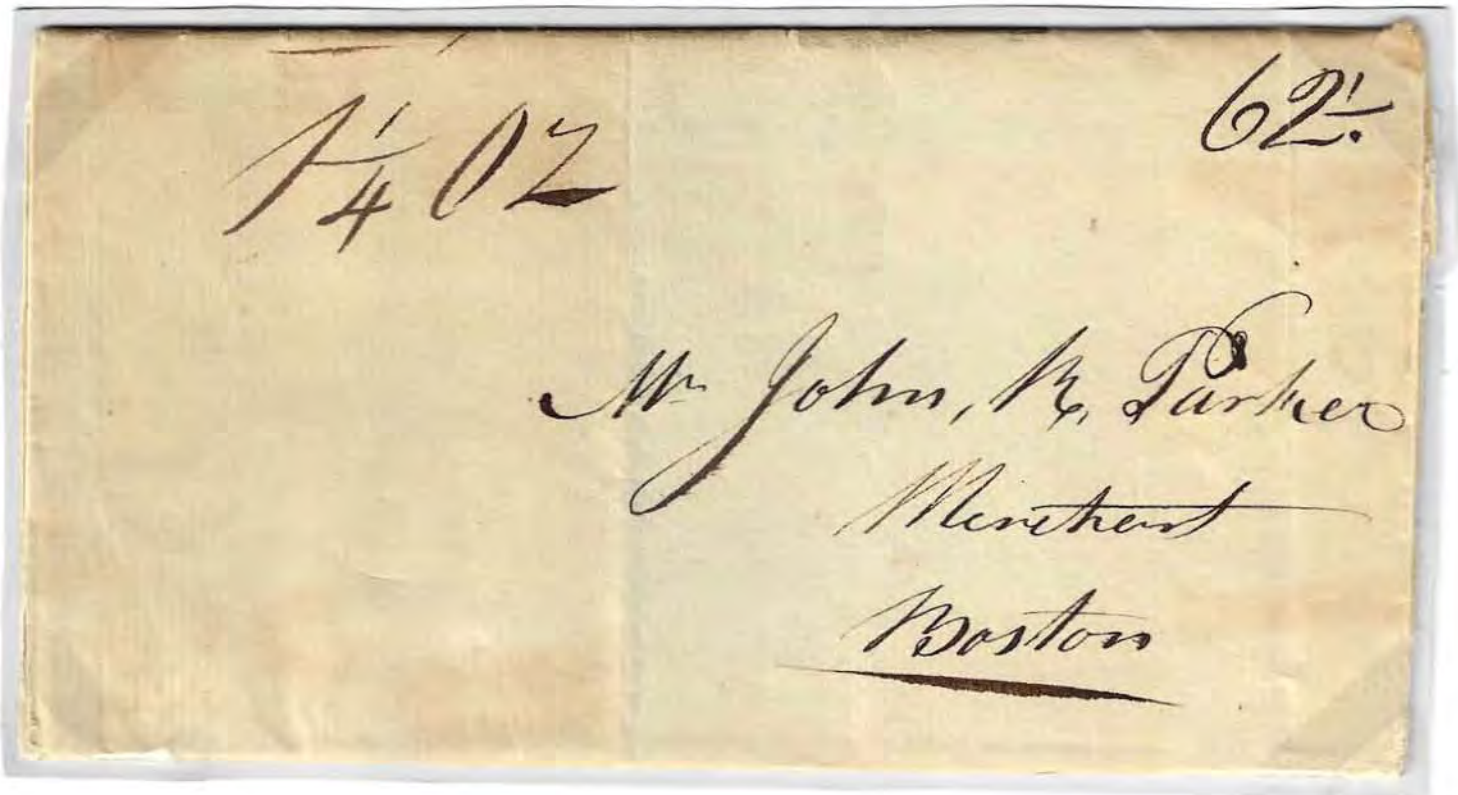 1¼ Oz
62½
Mr John, R, Parker
Merchant
Boston